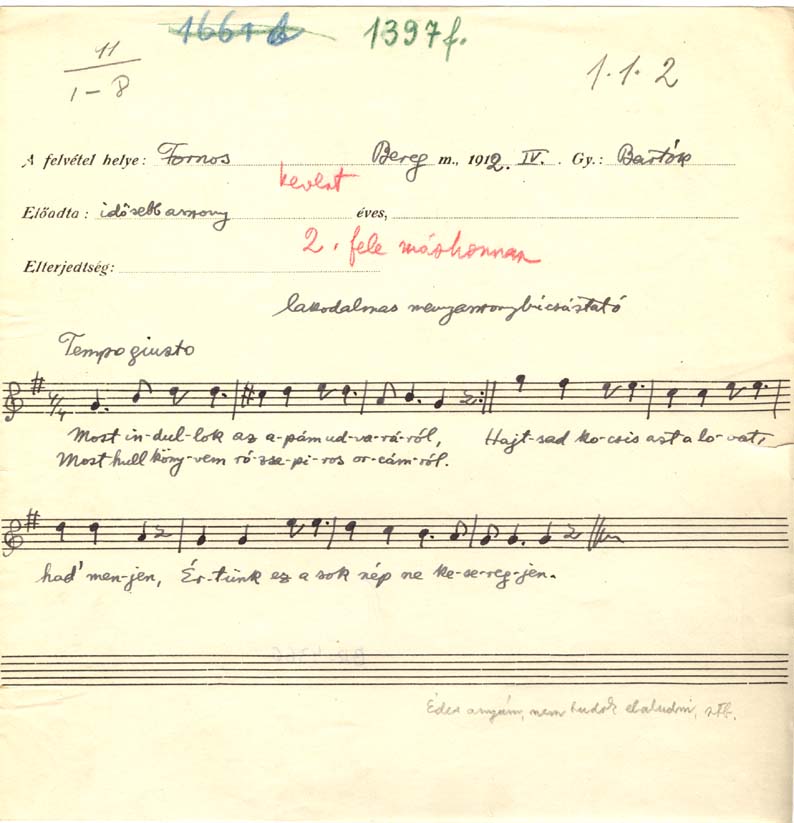 1661b 1397f.
11
1–8
1. 1. 2
A felvétel helye: Fornos Bereg m., 1912. IV. Gy.: Bartók
kevert
Előadta: idősebb asszony éves,
2. fele máshonnan
Elterjedtség:
lakodalmas menyasszonybúcsúztató
Tempo giusto
4/4
Most in-dul-lok az a-pám ud-va-rá-ról, Hajt-sad ko-csis azt a lo-vat,
Most hull köny-vem ró-zsa-pi-ros or-cám-ról.
had' men-jen, Ér-tünk ez a sok nép ne ke-se-reg-jen.
Édes anyám, nem tudok elaludni, stb.